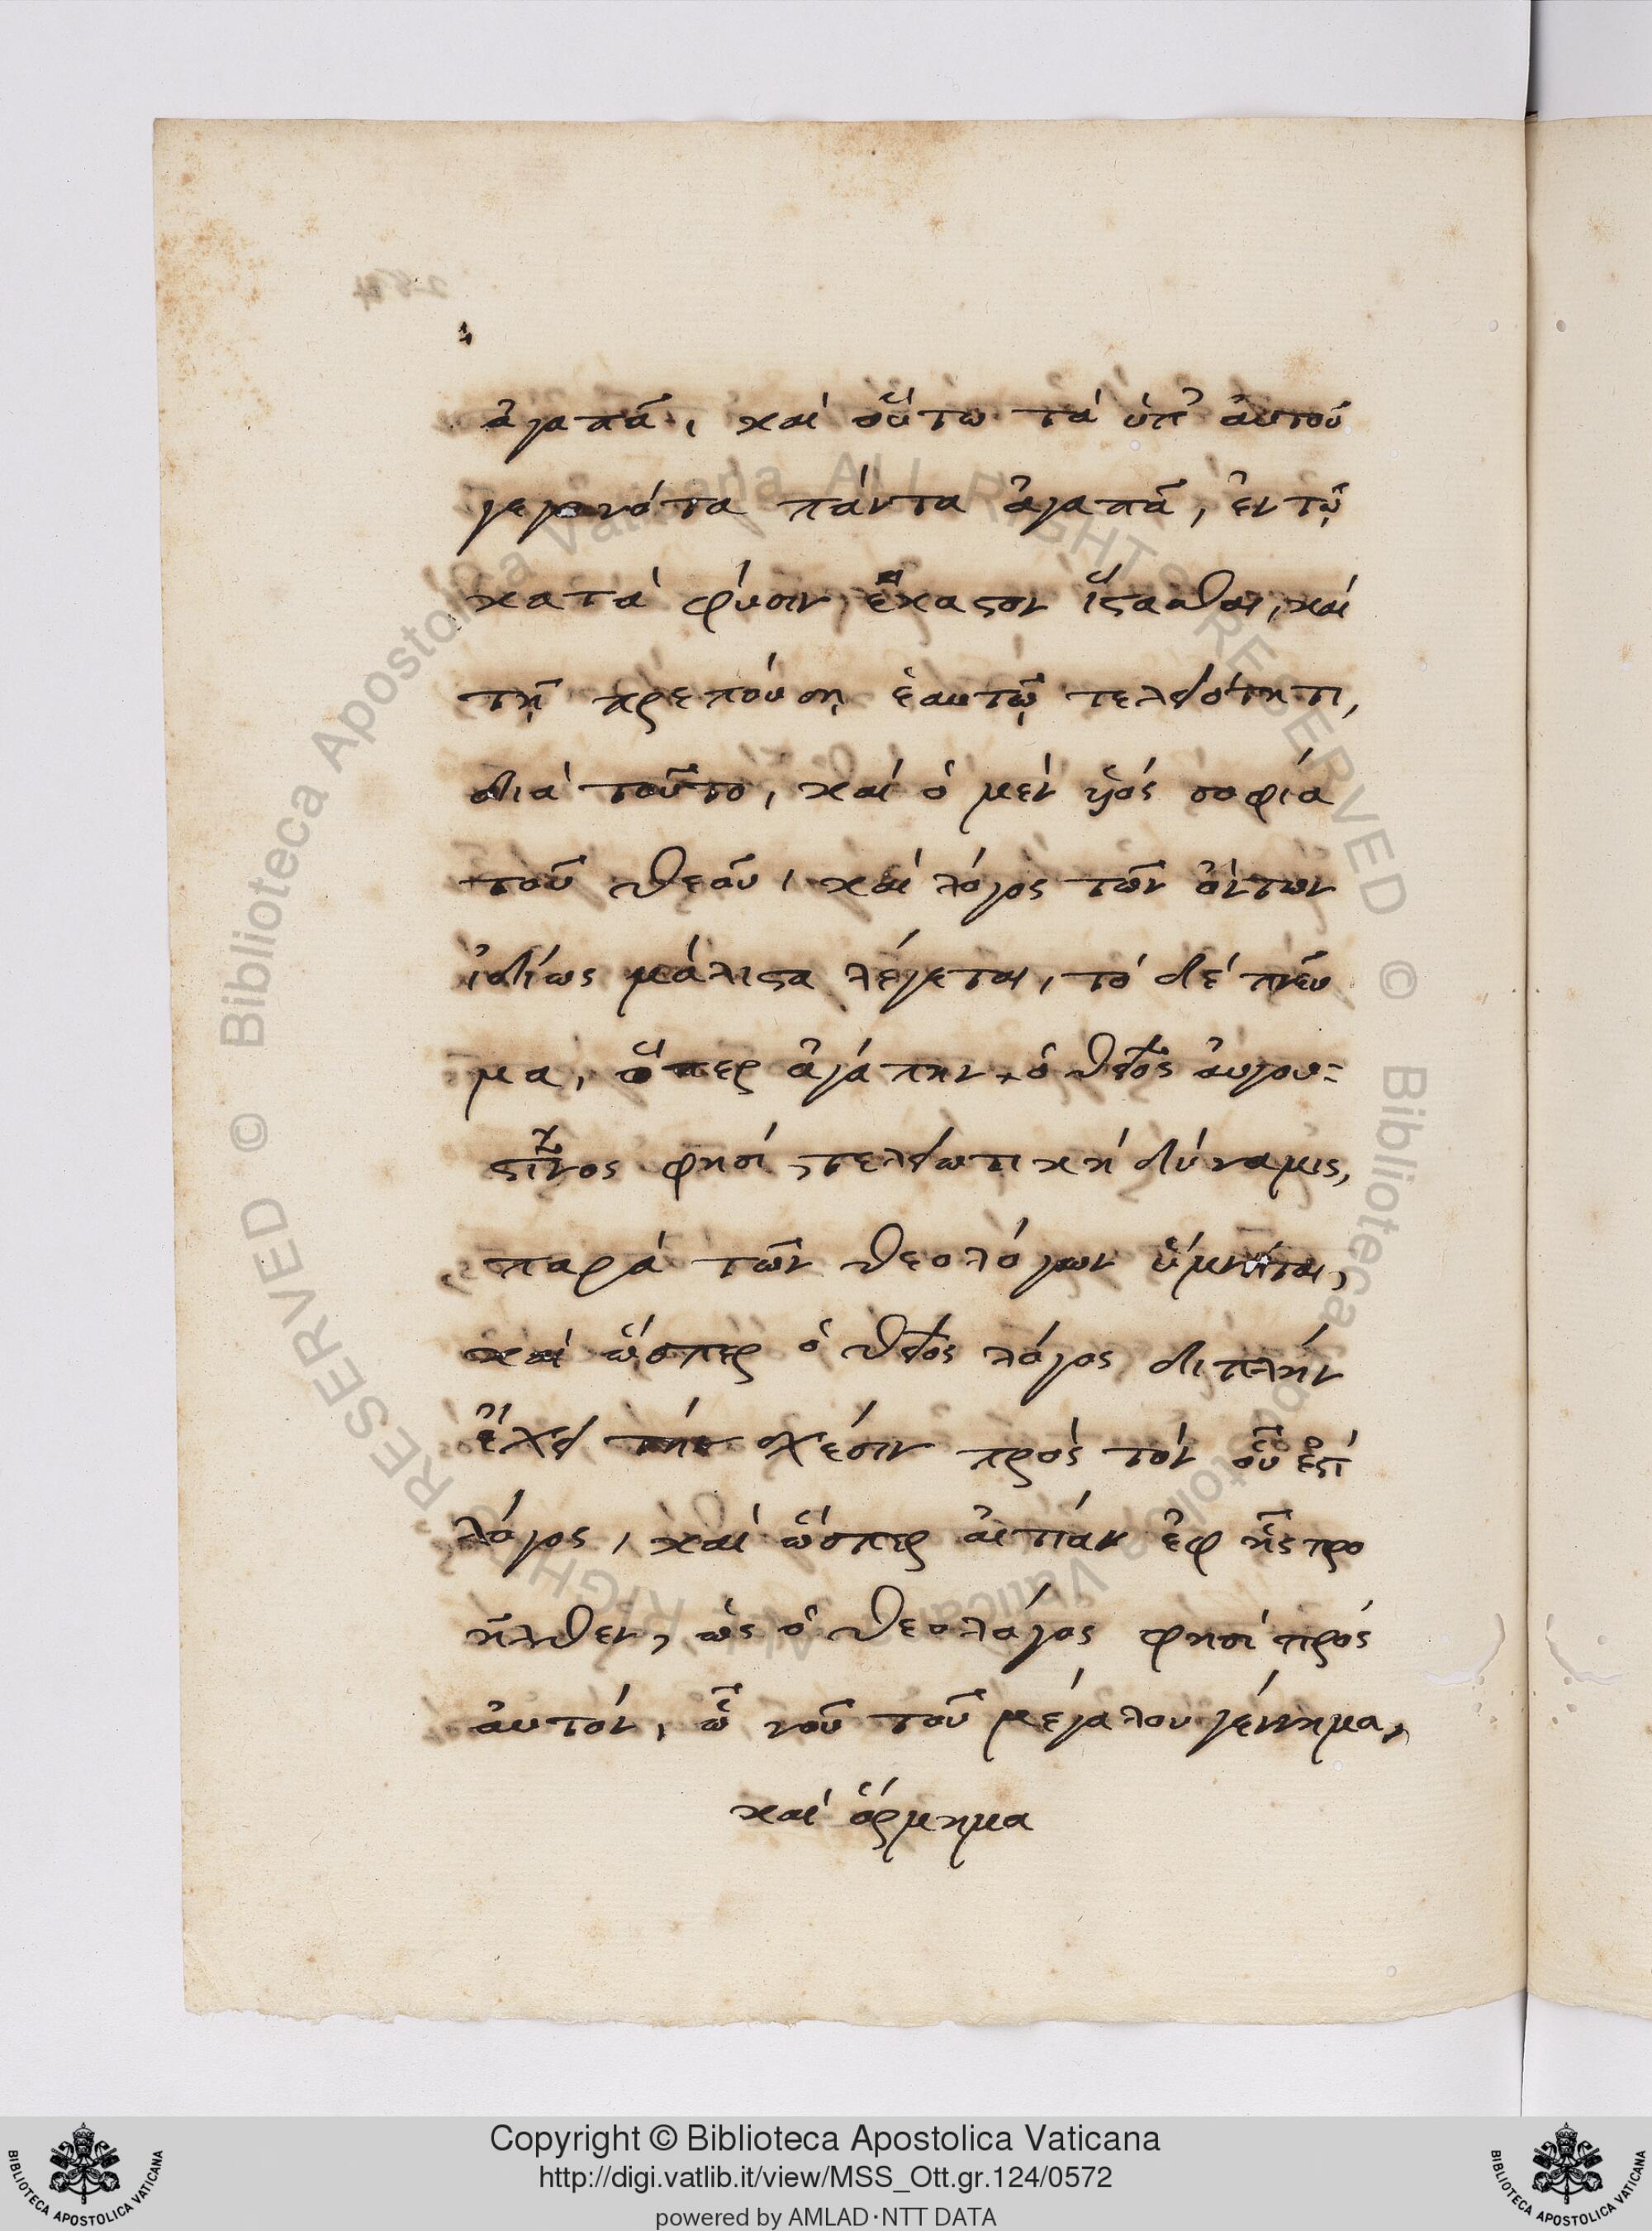 ἀγαπᾶ, καὶ οὕτω τὰ ὑπ' ἀυτοῦ
γεγονότα πάντα ἀγαπᾶ, ἐν τῷ
κατὰ φύσιν ἕκαστον ἵστασθαι, καὶ
τῇ πρεπούσῃ ἑαυτῷ τελειότητι,
διὰ τοῦτο, καὶ ὁ μὲν ὑιὸς σοφία
τοῦ θεοῦ, καὶ λόγος τῶν ὄντων
ἰδίως μάλιστα λέγεται, τὸ δὲ πνεῦ
μα, ὅπερ ἀγάπην ὁ θεῖος ἀυγου=
στῖνος φησὶ, τελειωτικὴ δύναμις,
παρὰ τῶν θεολόγων ὑμνεῖται,
καὶ ὥσπερ ὁ θεῖος λόγος διπλὴν
ἔχει τὴν σχέσιν πρὸς τὸν οὗ ἐστὶ
λόγος, καὶ ὥσπερ ἀιτίαν ἐφ ἧς προ
ῆλθεν, ὡς ὁ θεολόγος φησὶ πρὸς
ἀυτὸν, ὦ νοῦ τοῦ μεγάλου γέννημα,
καὶ ὅρμημα
Copyright © Biblioteca Apostolica Vaticana
http://digi.vatlib.it/view/MSS_Ott.gr.124/0572
powered by AMLAD·NTT DATA
BIBLIOTECA APOSTOLICA VATICANA
BIBLIOTECA APOSTOLICA VATICANA
© Biblioteca Apostolica Vaticana ALL RIGHT RESERVED
© Biblioteca Apostolica Vaticana ALL RIGHT RESERVED